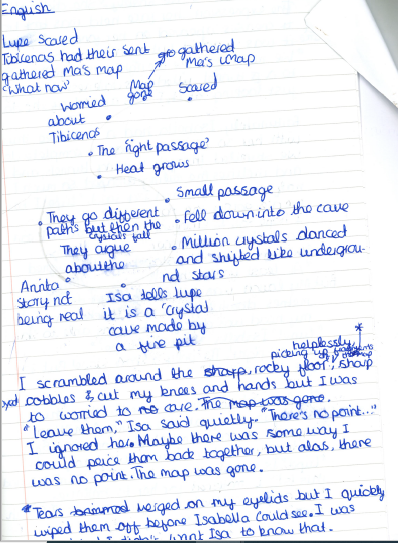 English
Lupe scared
Tibicenas had their sent
gathered Ma's map
"What now"
gathered
Ma's Map
Map
gone
Scared
Worried
about
Tibicenas
The 'right passage'
Heat grows
Small passage
They go different
paths but then the
crystals fall
They argue
about the
Fell down into the cave
Million crystals danced
and shifted like undergrou-
nd stars
Arinta
story not
being real
Isa tells lupe
it is a 'crystal
cave made by
a fire pit
helplessly,
picking up
I scrambled around the sharp, rocky floor, sharp
cobbles & cut my knees and hands but I was
to worried to no care. The map was gone.
"Leave them," Isa said quietly. "There's no point..."
I ignored her. Maybe there was some way I
could peice them back together, but alas, there
was no point. The map was gone.
*Tears brimmed verged on my eyelids but I quickly
wiped them off before Isabella could see. I was
I didn't want Isa to know that.